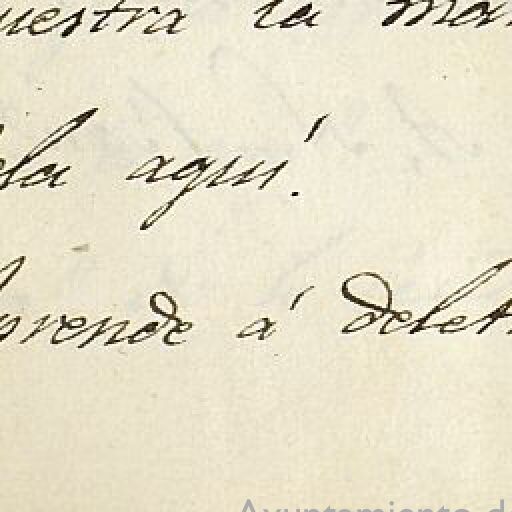 uestra la man
ela aquí.
prende á delet
Ayuntamiento d